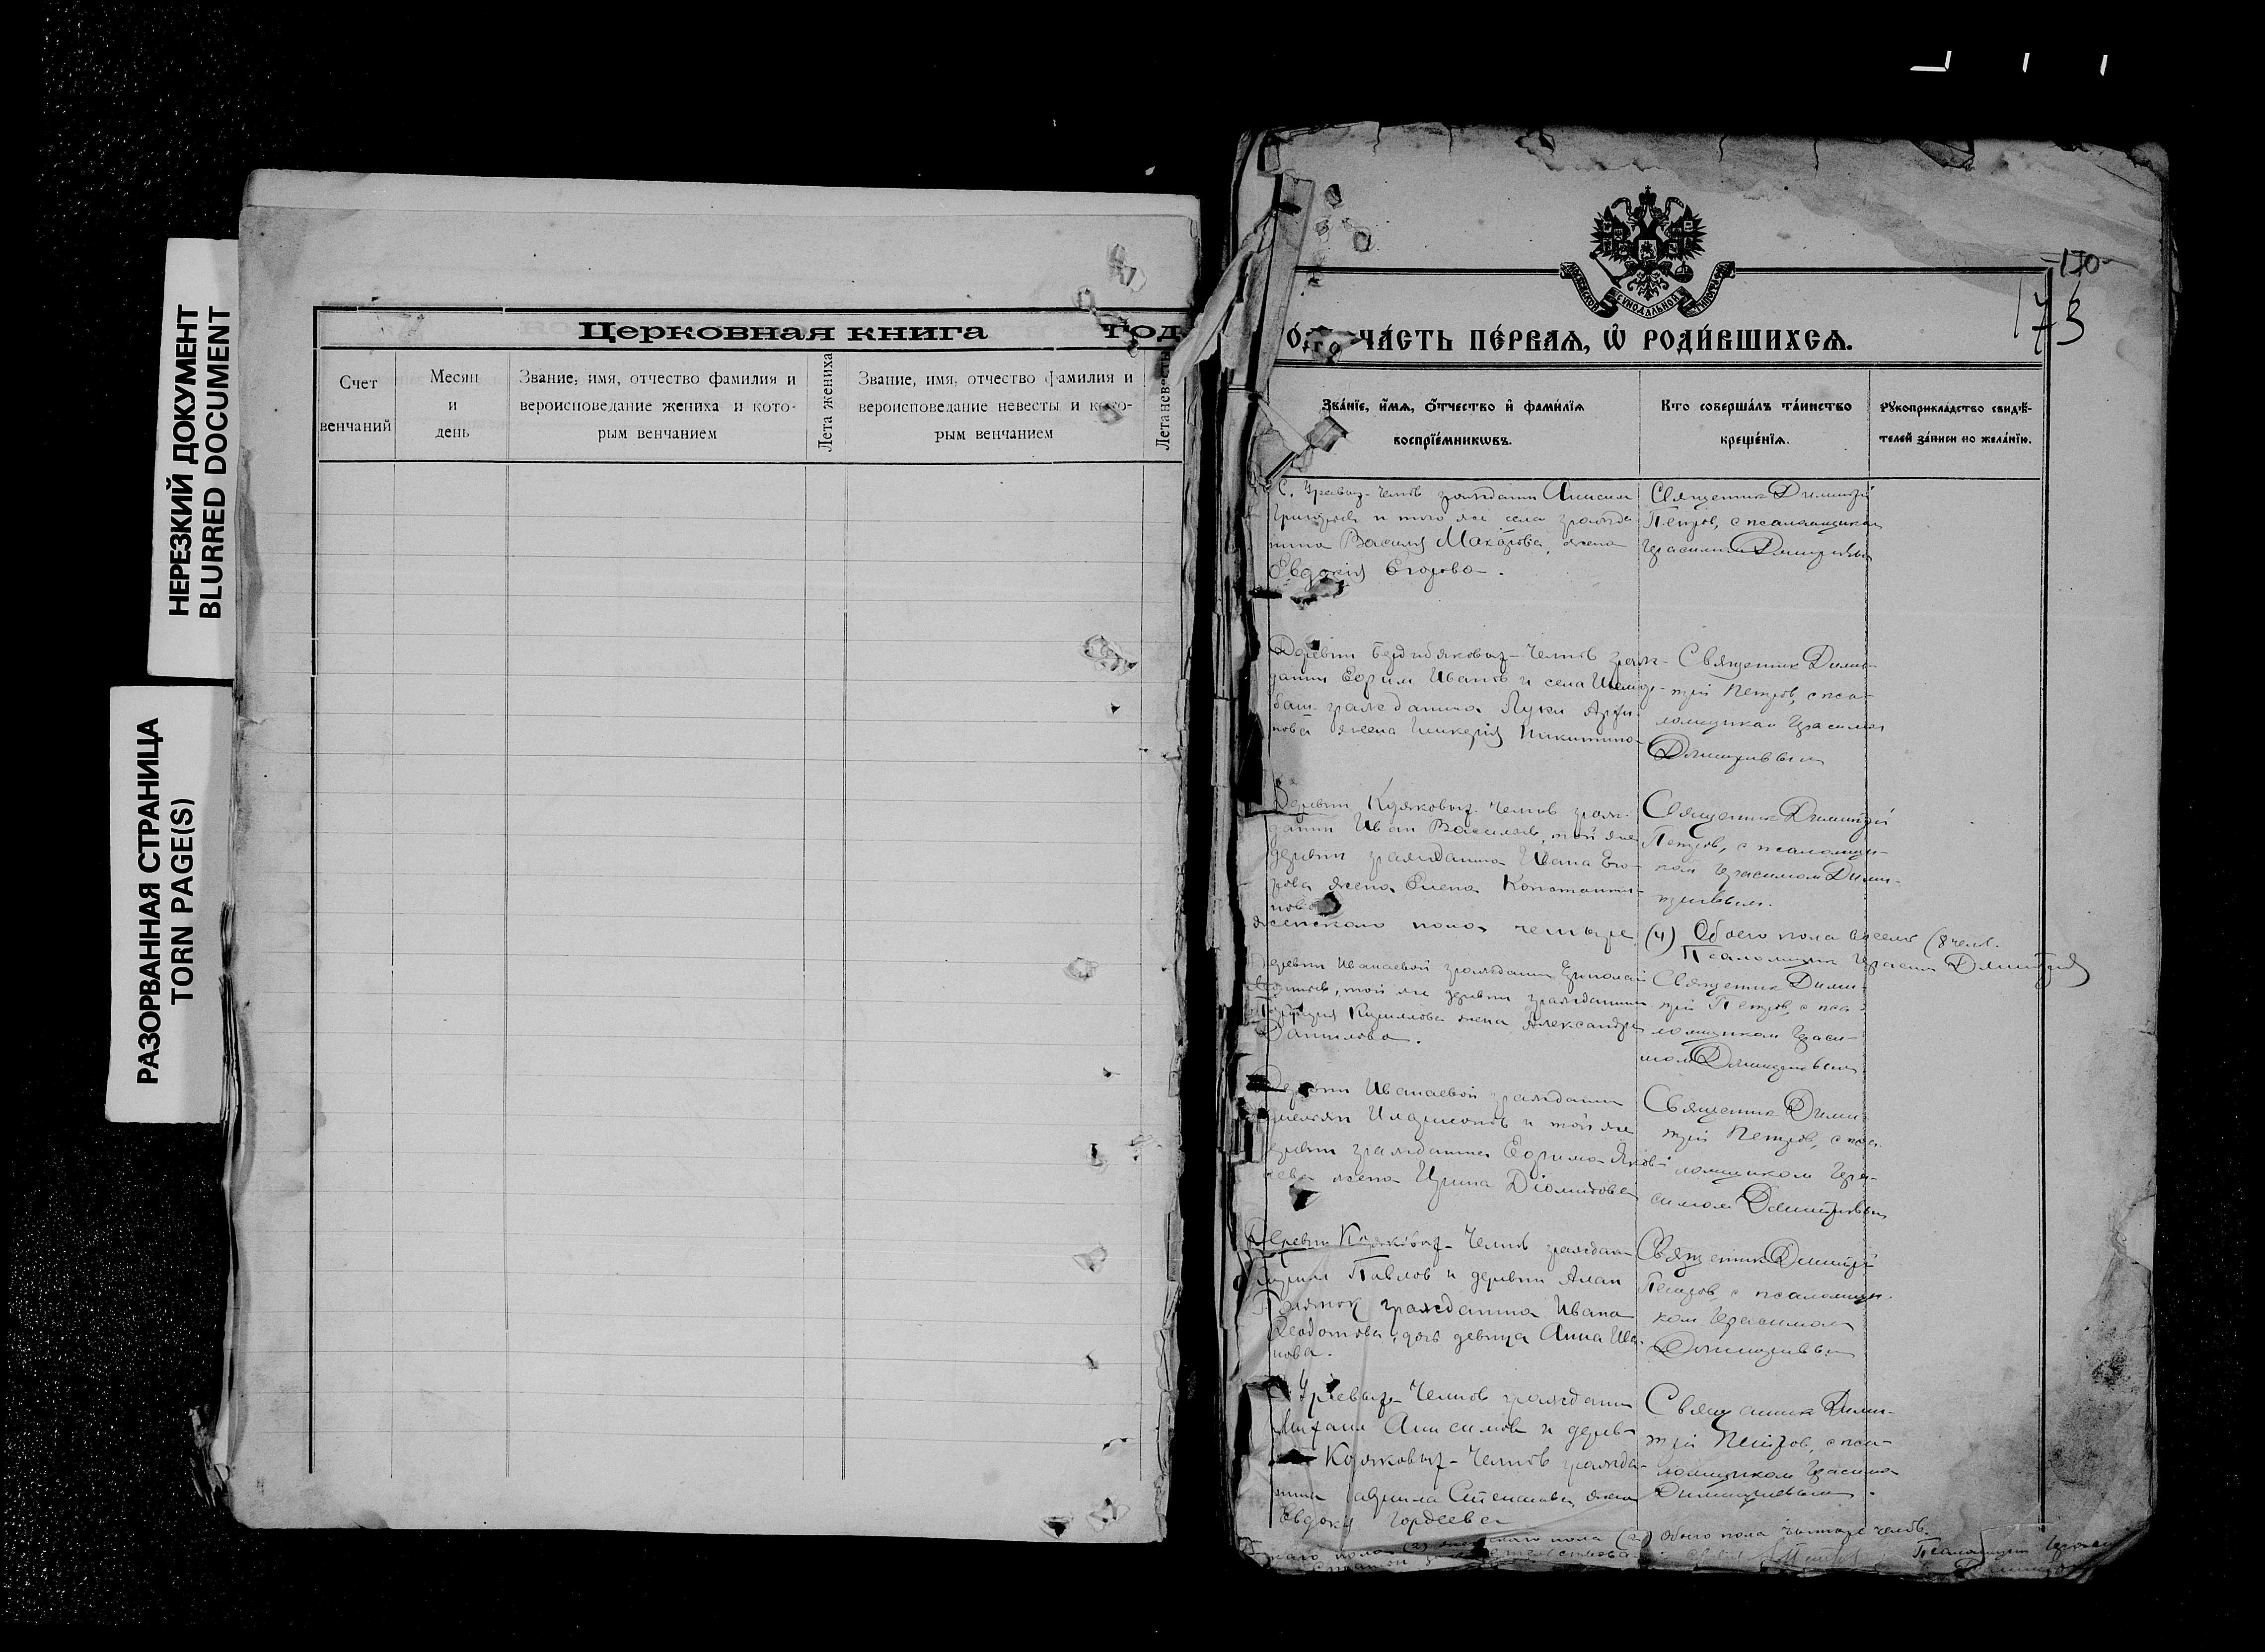 НЕРЕЗКИЙ ДОКУМЕНТ
BLURRED DOCUMENT
РАЗОРВАННАЯ СТРАНИЦА
TORN PAGE(S)
Церковная книга год
Счет венчаний
Месяц и день
Звание, имя, отчество фамилия и
вероисповедание жениха и кото-
рым венчанием
Лета жениха
Звание, имя, отчество фамилия и
вероисповедание невесты и кото-
рым венчанием
Лета невесты
-170-
173
ЧА́СТЬ ПЕ́РВАѦ, Ѡ҆ РОДИ́ВШИХСѦ.
Зва́нїе, и҆́мѧ, ѻ҆́тчество и҆ фами́лїѧ
воспрїе́мникѡвъ.
Кто соверша́лъ та́инство
креще́нїѧ.
Рꙋкоприкла́дство свидѣ́-
телей за́писи по жела́нїю.
гражданин Анисим
и того же села гражда-
нина Василия Макарова, жена
Евдокия Егорова.
Священник Димитрий
Петров, с псаломщиком
Герасимом Димитриевым
Деревни Челнов граж-
данин Ефрим Иванов и села
гражданина Луки
жена Гликерия Никитина
Священник Дими-
трий Петров, с пса-
ломщиком Герасимом
Димитриевым
Деревни Челнов граж-
данин Иван Васильев, той же
деревни гражданина Ивана Его-
рова жена Елена Константи-
нова
Священник Димитрий
Петров, с псаломщи-
ком Герасимом Дими-
триевым.
женского пола четыре (4) Обоего пола восемь (8 чел.
Псаломщик Герасим Димитриев
Деревни Иванаевой гражданин Ермолай
той же деревни гражданина
Кириллова жена Александра
Данилова.
Священник Дими-
трий Петров, с пса-
ломщиком Гераси-
мом Димитриевым
Деревни Иванаевой гражданин
и той же
деревни гражданина Ефрима Яков-
лева жена Ирина Диомидова
Священник Дими-
трий Петров, с пса-
ломщиком Гера-
симом Димитриевым
Деревни Челнов граждан
Павлов и деревни Алан
Полянок гражданина Ивана
Феодотова, дочь девица Анна Ива-
нова.
Священник Димитрий
Петров, с псаломщи-
ком Герасимом
Димитриевым
Челнов гражданин
Михаил Анисимов и дерев-
Челнов гражда-
нина Гавриила Степанова, жена
Евдокия Гордеева
Священник Дими-
трий Петров, с пса-
ломщиком Герасимом
Димитриевым.
пола (2) женского пола (2) Обоего пола четыре челов.
Псаломщик Герасим